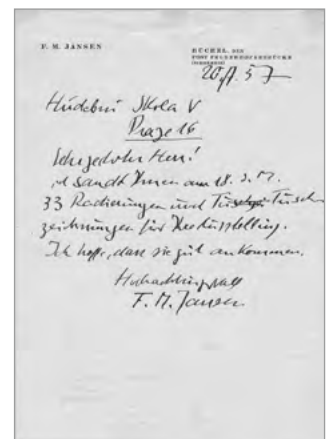 F. M. JANSEN
BÜCHEL, DEN
POST FEUSERDORFERBRÜCKE
57
Hudební Skola V
Prage 16
Sehr geehrter Herr!
ich sandte Ihnen am 18. 3. 57.
33 Radierungen und Tusch
zeichnungen für die Ausstellung.
Ich hoffe, dass sie gut ankommen.
Hochachtungsvoll
F. M. Jansen